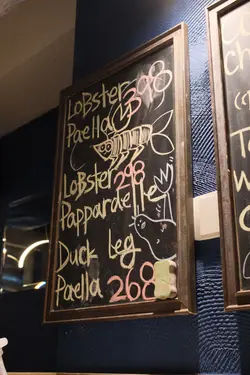 LoBster 398
Paella
LoBster 298
Pappardelle
Duck leg
Paella 268